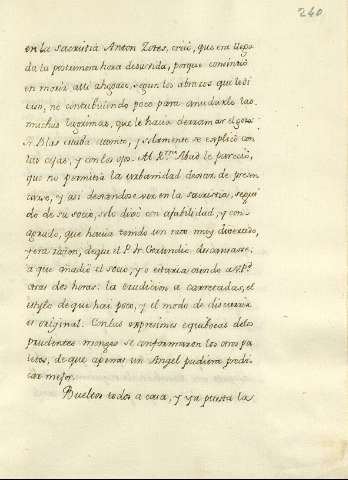 240
en la sacristia Anton Zotes, creió, que era llega
da la postrimera hora de su vida, porque consintió
en morir alli ahogado, segun los abrazos que le di
eron, no contribuiendo poco para anudarle las
muchas lagrimas, que le havia derramar el gozo.
Fr. Blas estaba atonito, y solamente se explicó con
las cejas, y con los ojos. Al Rmo. Abad le pareció,
que no permitia la urbanidad dexar de presen
tarse, y asi dexandose ver en la sacristia, segui
do de su socio, solo dixo con afabilidad, y con
agrado, que havia tenido un rato muy divertido,
y era razon, de que el P. Fr. Gerundio descansasse:
a que añadió el socio, y o estaria oiendo a V.P.
otras dos horas: la erudicion a carretadas, el
estylo de que hai poco, y el modo de discurrir
es original. Con las expresiones equibocas de los
prudentes monges se conformaron los otros pa
letos, de que apenas un Angel pudiera predi
car mejor.
Bueltos todos a casa, y ya puesta la